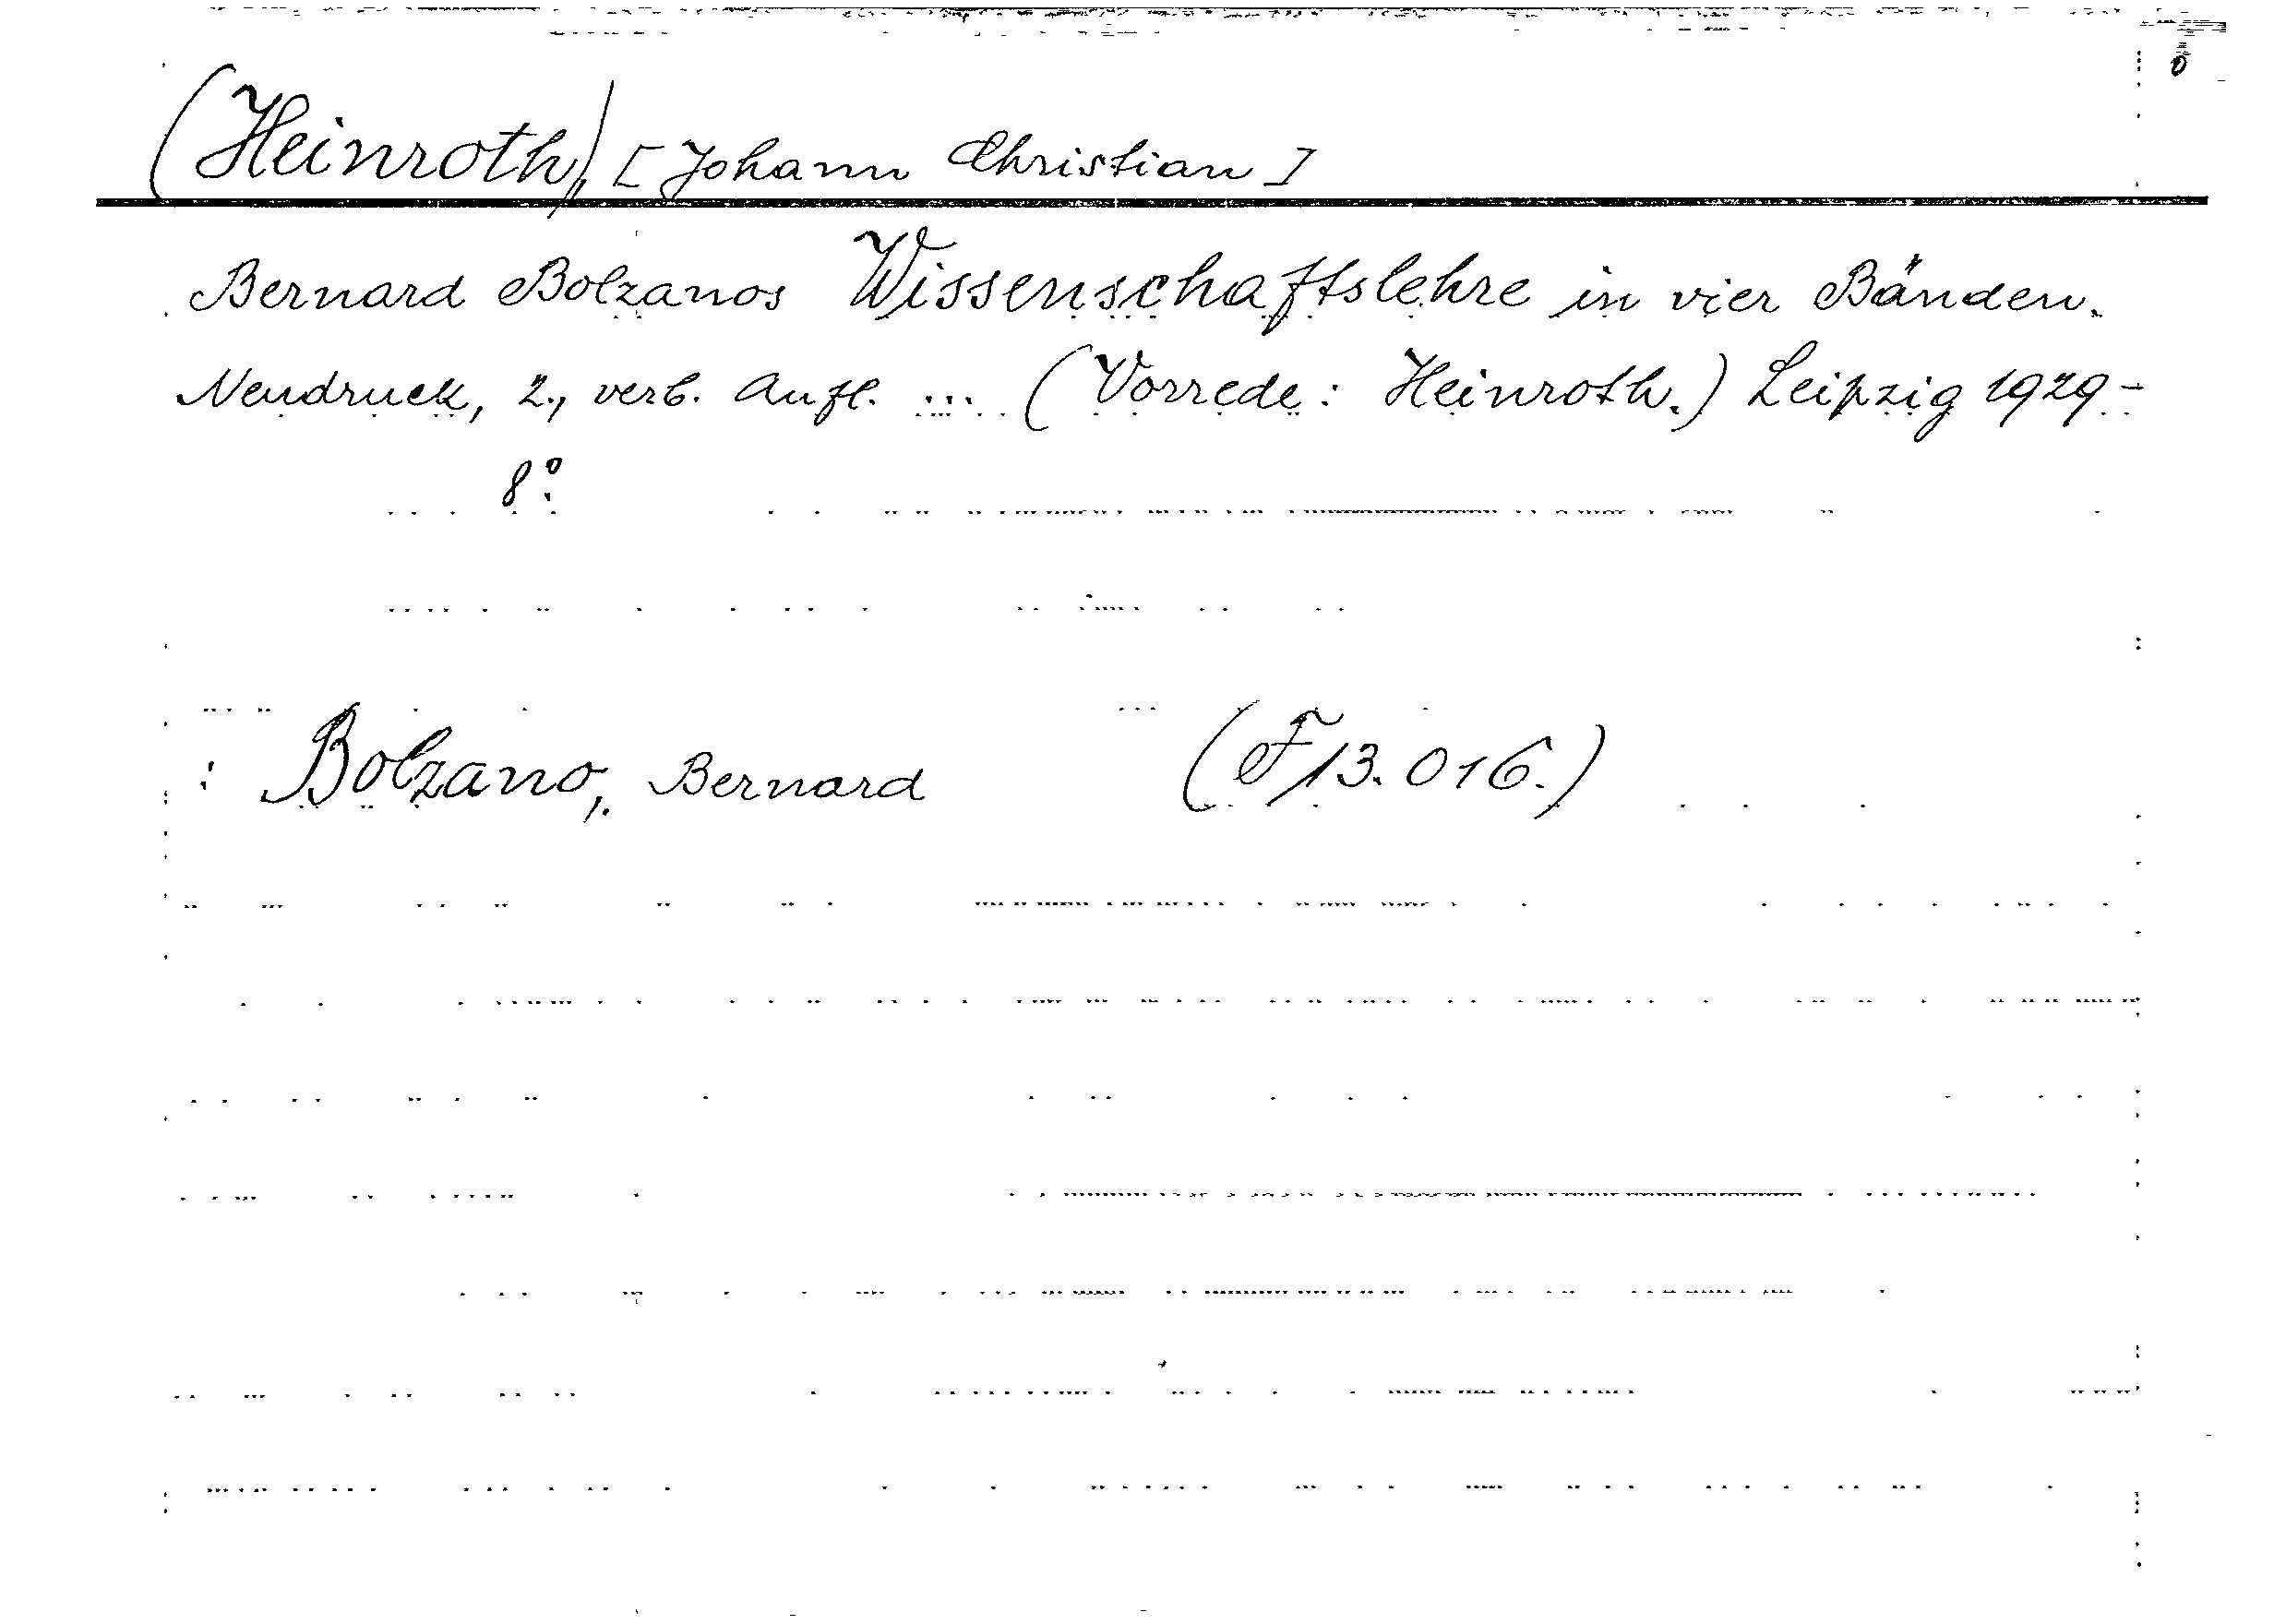 (Heinroth), [Johann Christian]
Bernard Bolzanos Wissenschaftslehre in vier Bänden.
Neudruck, 2., verb. Aufl. ... (Vorrede: Heinroth.) Leipzig 1929-
8°.
: Bolzano, Bernard (F 13.016.)